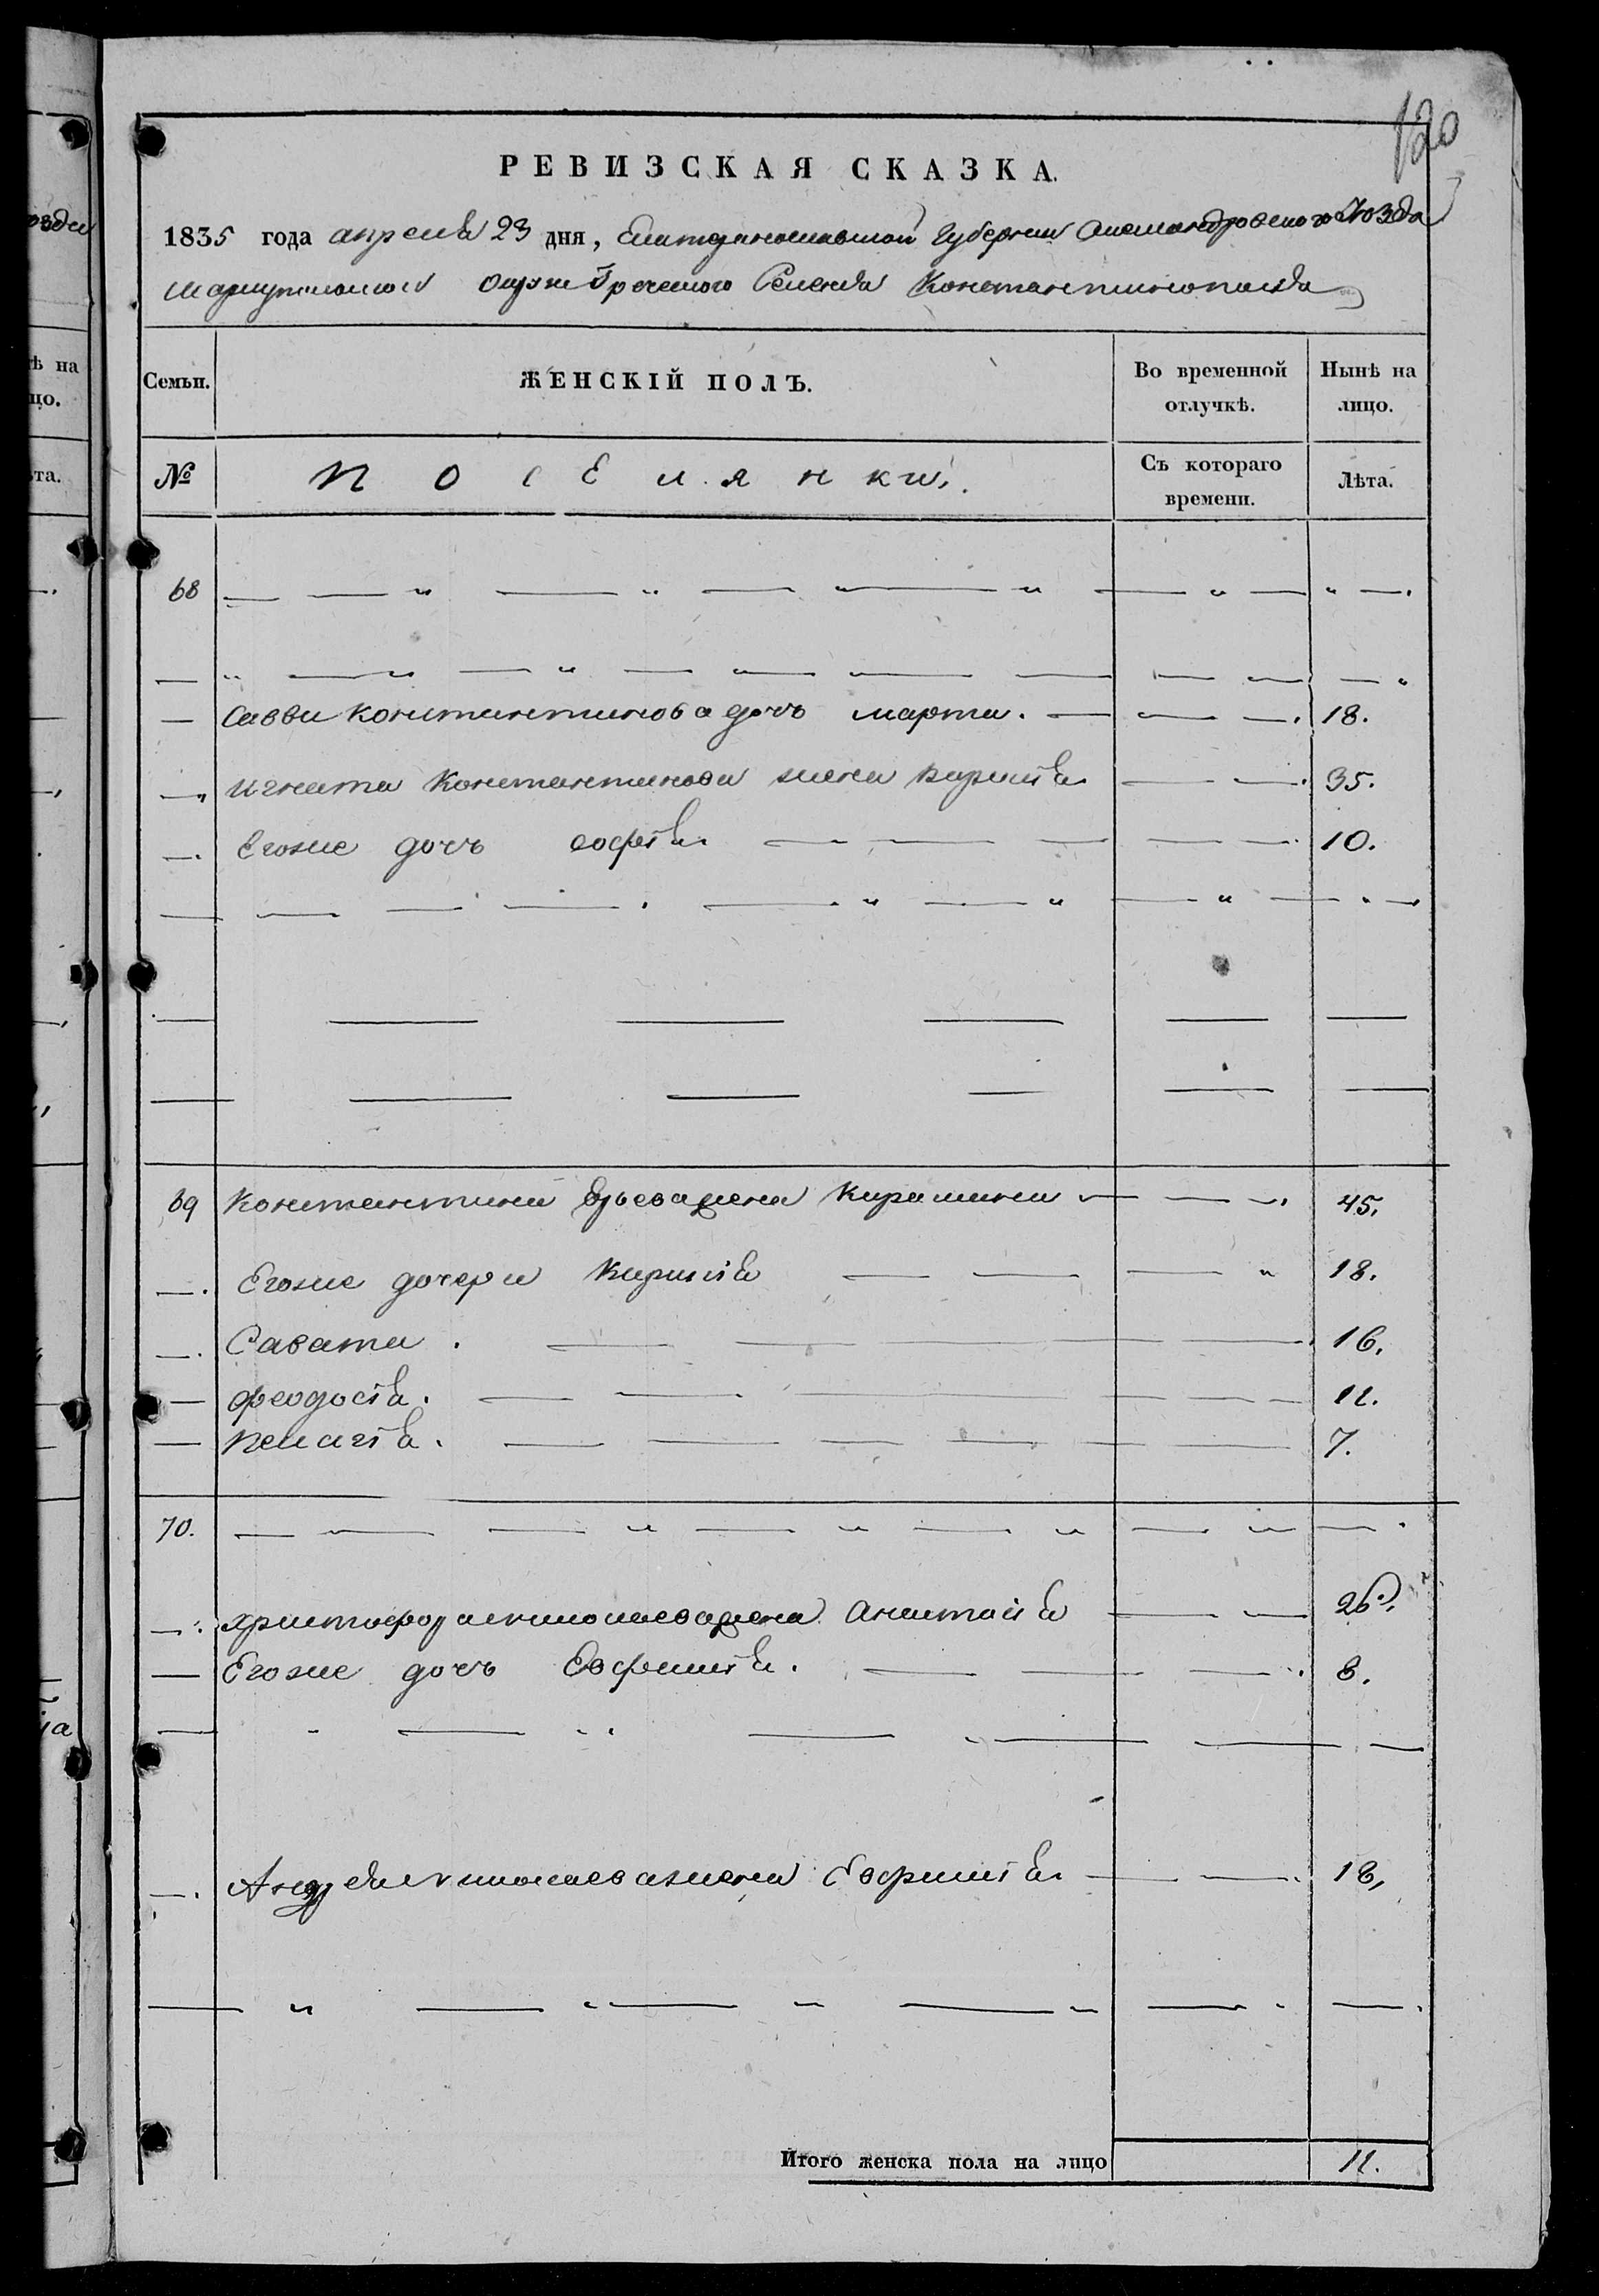 120
РЕВИЗСКАЯ СКАЗКА.
1835 года апреля 23 дня, Екатеринославской Губернии Александровского Уезда
Мариупольского Округа Греческого Селения Константинополя
Семьи. ЖЕНСКІЙ ПОЛЪ. Во временной отлучкѣ. Нынѣ на лицо.
№ Поселянки. Съ котораго времени. Лѣта.
68
Савви Константинова дочь марта. 18.
Игната Константинова жена Кирикія 35.
Егоже дочь софія 10.
69 Константина жена 45.
Егоже дочери Кирикія 18.
Савата. 16.
феодосія. 11.
Пелагія. 7.
70.
Христофора николаева жена Анастасія 26.
Егоже дочь Евфимія. 8.
Андрея николаева жена Евфимія 18,
Итого женска пола на лицо 11.
ѣ на
цо.
ѣта.